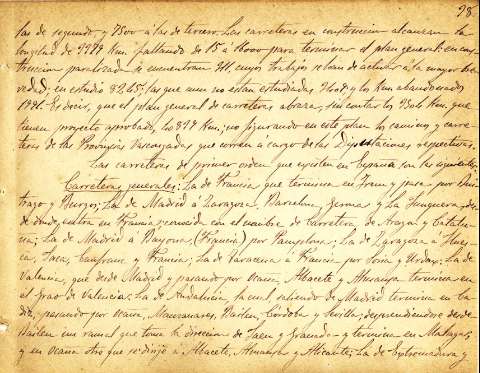 98
las de segundo, y 7500 á las de tercero. Las carreteras en construccion alcanzan la
longitud de 2779 Km. faltando de 15 á 16000 para terminar el plan general: en cons-
truccion paralizada se encuentran 311, cuyos trabajos se han de activar á la mayor bre-
vedad; en estudio 8265; las que aun no estan estudiadas 9607 y los Km. abandonados
1986. Es decir, que el plan general de carreteras abraza, sin contar los 2306 Km. que
tienen proyecto aprobado, los 877 Km.; no figurando en este plan los caminos y carre-
teras de las Provincias Vascongadas que corren á cargo de las Diputaciones respectivas.
Las carreteras de primer orden que existen en España son las siguientes:
Carreteras generales: La de Francia que termina en Irun y pasa por Bui-
trago y Burgos; La de Madrid á Zaragoza, Barcelona, Gerona y La Junquera, des-
de donde entra en Francia; conocida con el nombre de Carretera de Aragon y Catalu-
ña; La de Madrid á Bayona, (Francia) por Pamplona; La de Zaragoza á Hues-
ca, Jaca, Canfranc y Francia; La de Taracena á Francia por Soria y Urdax; La de
Valencia, que desde Madrid y pasando por Ocaña, Albacete y Almansa termina en
el grao de Valencia; La de Andalucia, la cual saliendo de Madrid termina en Ca-
diz, pasando por Ocaña, Manzanares, Bailen, Córdoba y Sevilla; desprendiendose desde
Bailen un ramal que toma la direccion de Jaen y Granada y termina en Malaga,
y en Ocaña otro que se dirije á Albacete, Almansa y Alicante; La de Extremadura y